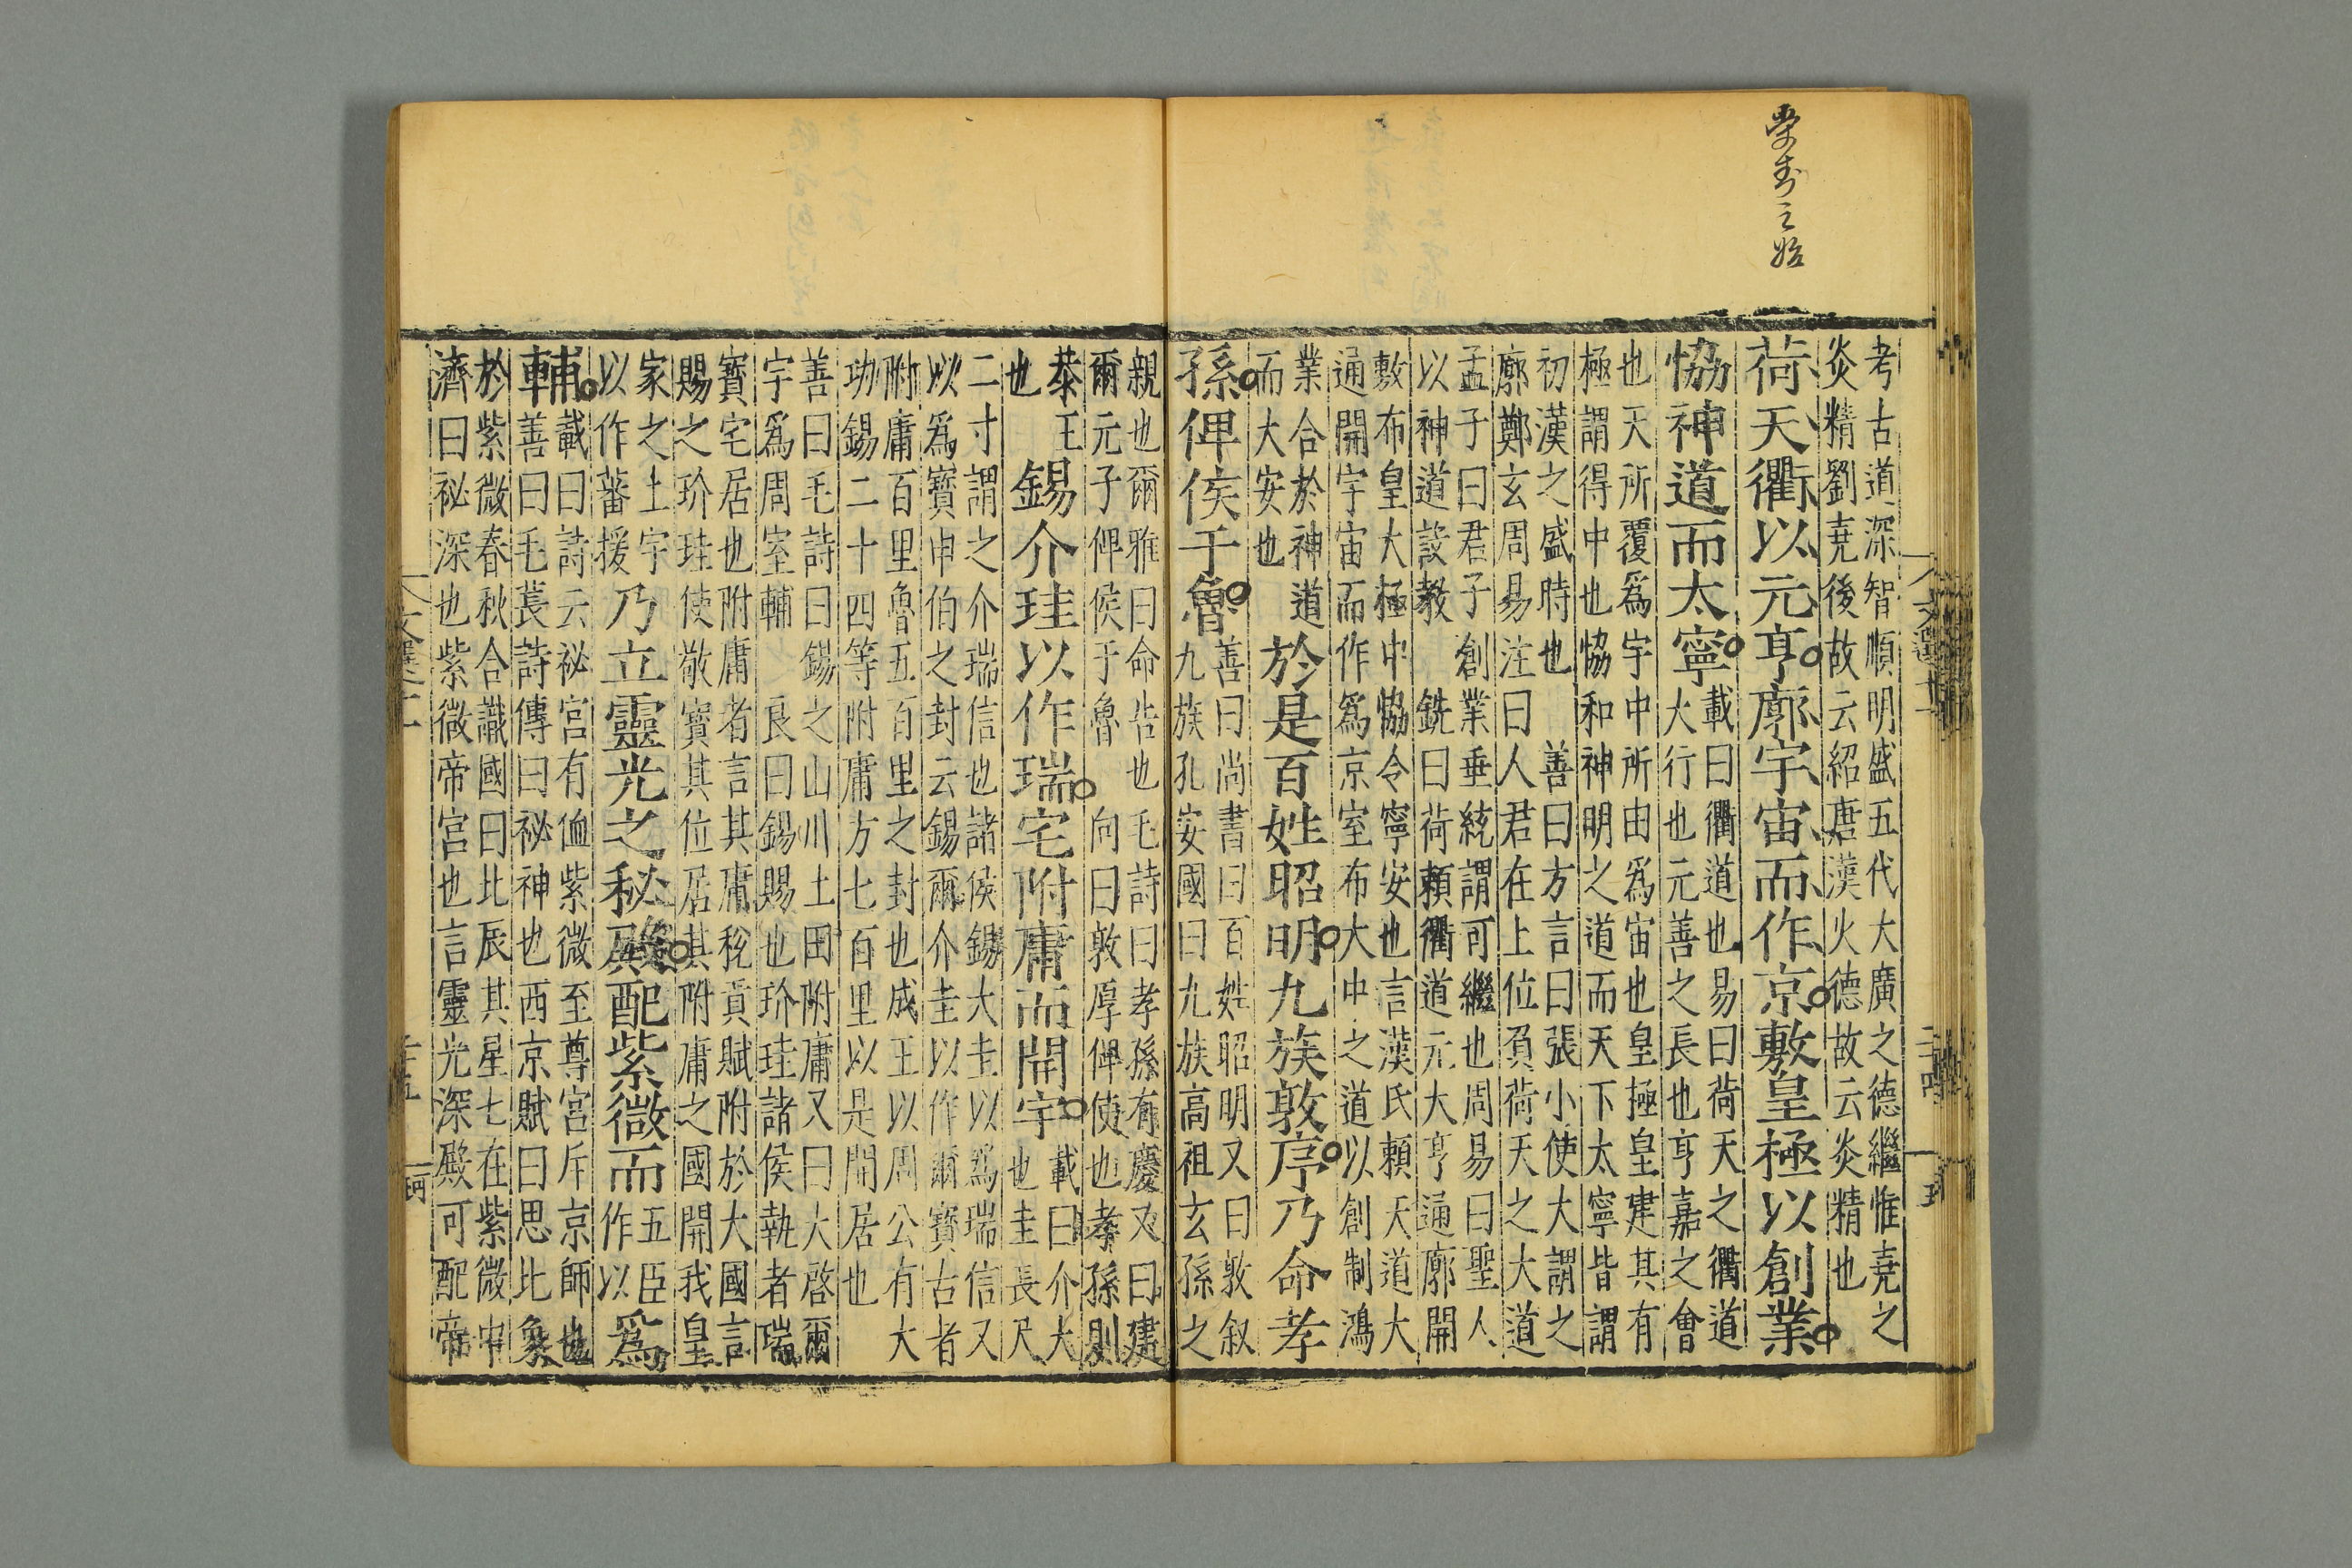 榮封之始
考古道深智順明盛五代大廣之德繼惟堯之
炎精劉堯後故云紹唐漢火德故云炎精也
荷天衢以元亨廓宇宙而作京敷皇極以創業
協神道而太寧
載曰衢道也易曰荷天之衢道
大行也元善之長也亨嘉之會
也天所覆爲宇中所由爲宙也皇極皇建其有
極謂得中也協和神明之道而天下太寧皆謂
初漢之盛時也 善曰方言曰張小使大謂之
廓鄭玄周易注曰人君在上位負荷天之大道
孟子曰君子創業垂統謂可繼也周易曰聖人
以神道設教 銑曰荷頼衢道元大亨通廓開
敷布皇大極中協令寧安也言漢氏頼天道大
通開宇宙而作爲京室布大中之道以創制鴻
業合於神道
而大安也
於是百姓昭明九族敦序乃命孝
孫俾侯于魯
善曰尚書曰百姓昭明又曰敦叙
九族孔安國曰九族高祖玄孫之
親也爾雅曰命告也毛詩曰孝孫有慶又曰建
爾元子俾侯于魯 向曰敦厚俾使也孝孫則
恭王
也
錫介珪以作瑞宅附庸而開宇
載曰介大
也圭長尺
二寸謂之介瑞信也諸侯錫大圭以爲瑞信又
以爲寶申伯之封云錫爾介圭以作爾寶古者
附庸百里魯五百里之封也成王以周公有大
功錫二十四等附庸方七百里以是開居也
善曰毛詩曰錫之山川土田附庸又曰大啓爾
宇爲周室輔 良曰錫賜也玠珪諸侯執者瑞
寶宅居也附庸者言其庸稅貢賦附於大國言
賜之玠珪使敬寶其位居其附庸之國開我皇
家之土宇
以作蕃援
乃立靈光之秘殿配紫微而
作五臣
作以
爲
輔
載曰詩云祕宮有侐紫微至尊宮斥京師也
善曰毛萇詩傳曰祕神也西京賦曰思比象
於紫微春秋合讖圖曰北辰其星七在紫微中
濟曰祕深也紫微帝宮也言靈光深殿可配帝